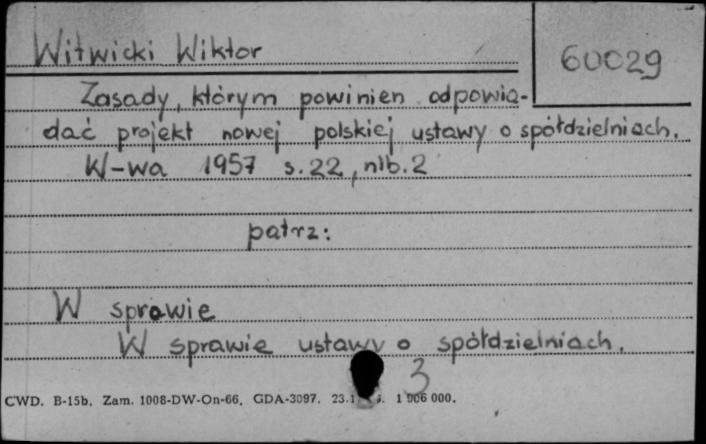 Witwicki Wiktor
60029
Zasady, którym powinien odpowia-
dać projekt nowej polskiej ustawy o spółdzielniach.
W-wa 1957 s.22, nlb.2
patrz:
W sprawie
W sprawie ustawy o spółdzielniach.
3
CWD. B-15b. Zam. 1008-DW-On-66. GDA-3097. 1 906 000.